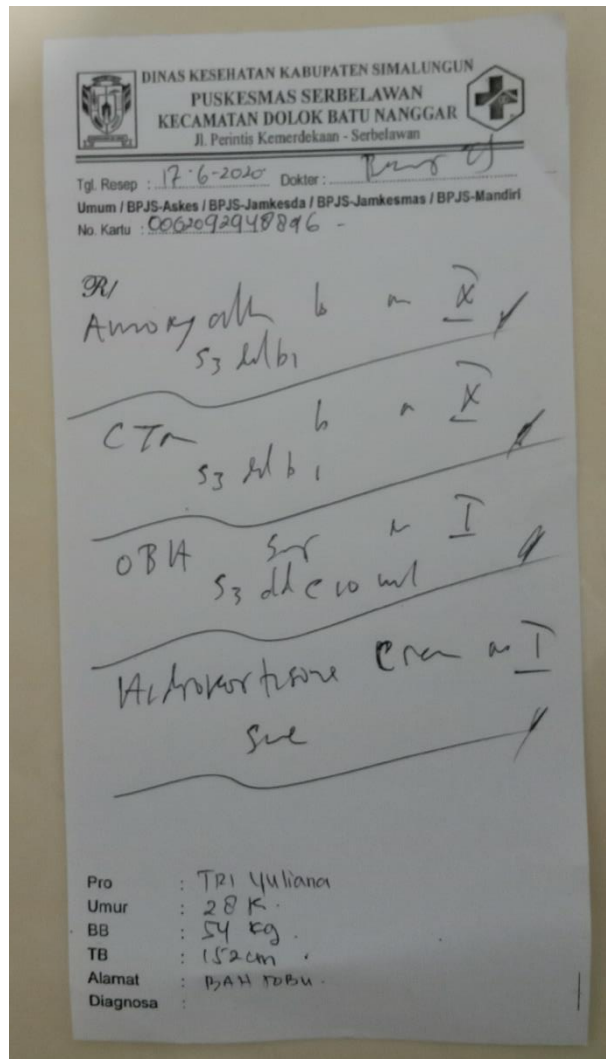 DINAS KESEHATAN KABUPATEN SIMALUNGUN
PUSKESMAS SERBELAWAN
KECAMATAN DOLOK BATU NANGGAR
Jl. Perintis Kemerdekaan - Serbelawan
Tgl. Resep : 17-6-2020 Dokter :
Umum / BPJS-Askes / BPJS-Jamkesda / BPJS-Jamkesmas / BPJS-Mandiri
No. Kartu : 0062092948896 -
R/
X
S3
CTM X
S3
OBH I
S3 dd c 10 ml
Hidrokortisone I
Sue
Pro : TRI Yuliana
Umur : 28
BB : 54 kg.
TB : 152cm
Alamat : BAH TOBU.
Diagnosa :